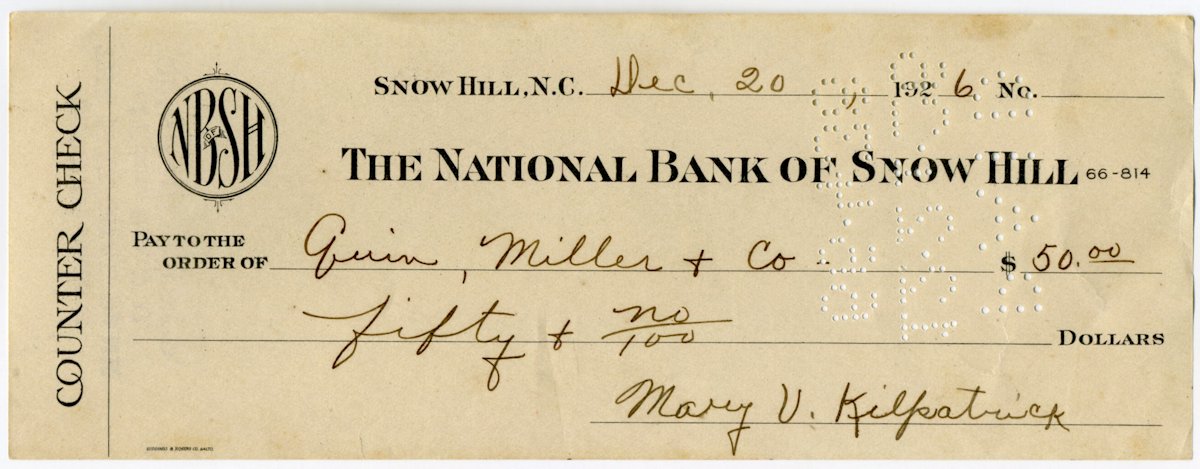 COUNTER CHECK
NB OF SH
SNOW HILL, N.C. Dec. 20, 1926 No.
THE NATIONAL BANK OF SNOW HILL 66-814
PAY TO THE
ORDER OF Quinn, Miller + Co $ 50.00
fifty + no/100 DOLLARS
Mary V. Kilpatrick